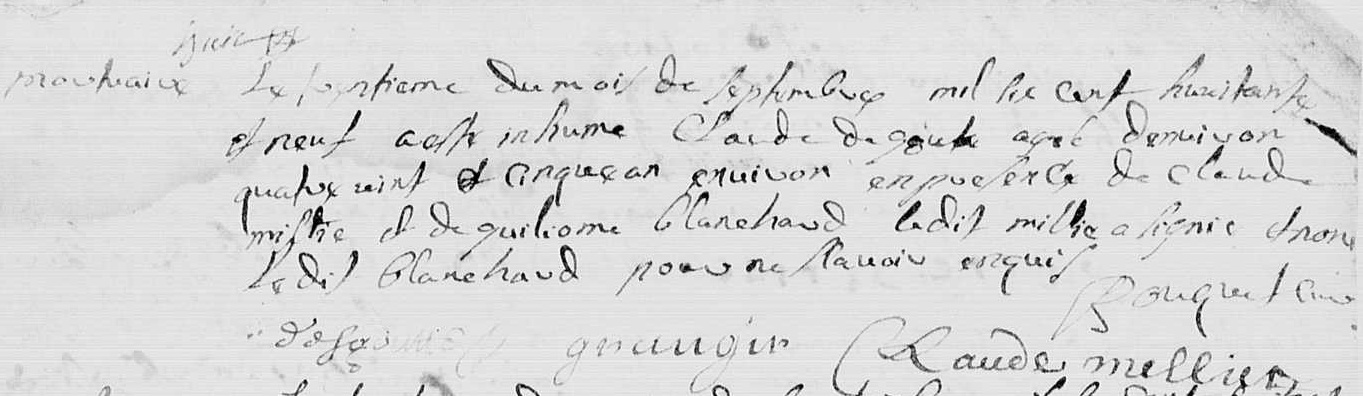 mortuaire
Le septieme du mois de septembre mil sis cent huitante
et neuf a esté inhumé Claude degoute agee denuiron
quatre uint et cinque an enuiron en presence de Claude
mistie et de guiliome blanchard ledit millie a signie et non
ledit blanchard pour ne sauoir enquis
Ronquet cure
desgouttes graugin Claude mellier